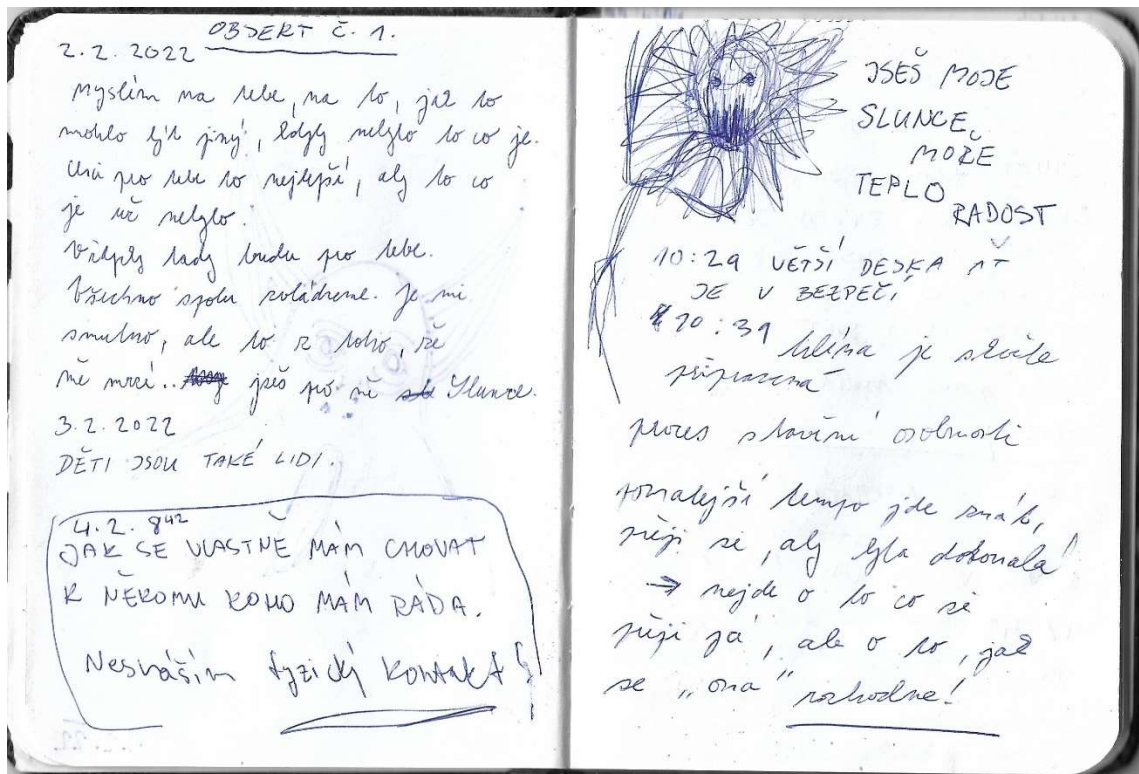 OBJEKT Č. 1.
2.2.2022
Myslím na tebe, na to, jak to
mohlo být jiný, kdyby nebylo to co je.
Chci pro tebe to nejlepší, aby to co
je už nebylo.
Vždycky tady budu pro tebe.
Všechno spolu zvládneme. Je mi
smutno, ale to z toho, že
mě mrzí.. jseš po mě Slunce.
3.2.2022
DĚTI JSOU TAKÉ LIDI.
4.2. 8⁴²
JAK SE VLASTNĚ MÁM CHOVAT
K NĚKOMU KOHO MÁM RÁDA.
Nesnáším fyzický kontakt
JSEŠ MOJE
SLUNCE,
MOŘE
TEPLO
RADOST
10:29 VĚTŠÍ DESKA AŤ
JE V BEZPEČÍ
10:39 hlína je skvěle
připravená
proces stavění osobnosti
pomalejší tempo jde znát,
přeji si, aby byla dokonalá
→ nejde o to co si
přeji já, ale o to, jak
se „ona" rozhodne!